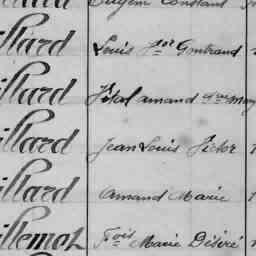 Eugène Constant
illard Louis Jos Gontrand
illard Vital amand
illard Jean Louis Victor
illard amand Marie
illemot Fois Marie Désiré